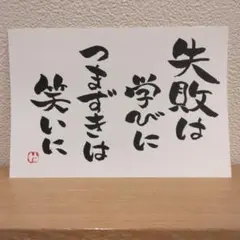 失敗は
学びに
つまずきは
笑いに